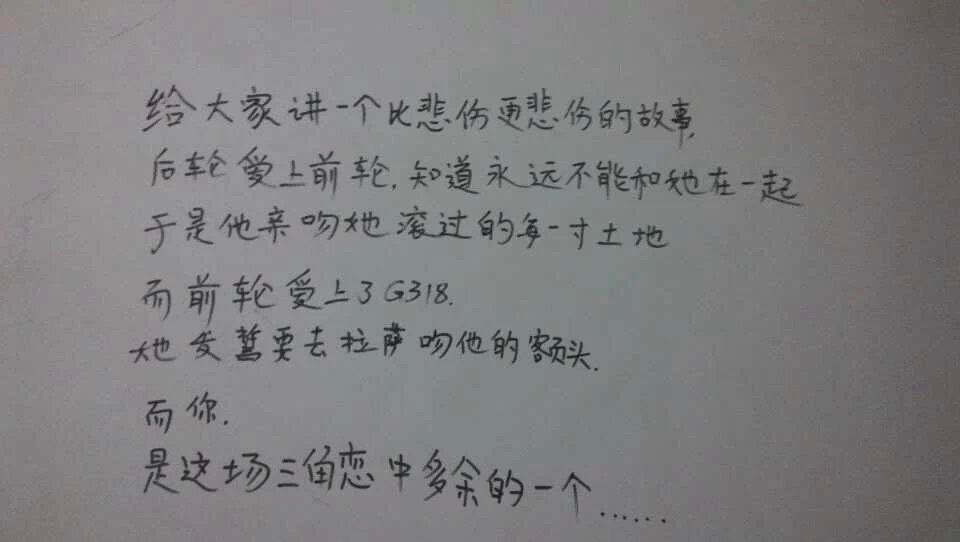 给大家讲一个比悲伤更悲伤的故事,
后轮爱上前轮.知道永远不能和她在一起
于是他亲吻她滚过的每一寸土地
而前轮爱上了G318.
她发誓要去拉萨吻他的额头.
而你.
是这场三角恋中多余的一个......